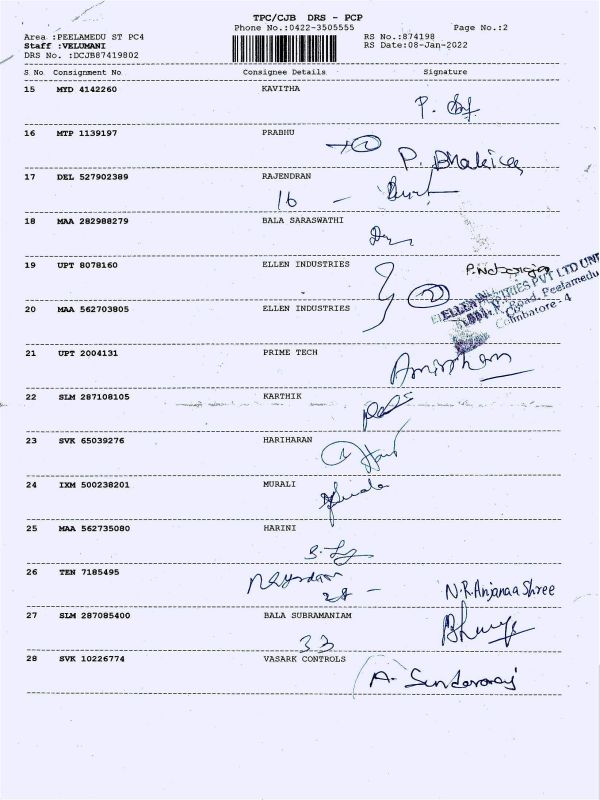 TPC/CJB DRS - PCP
Phone No.:0422-3505555
Page No.:2
Area :PEELAMEDU ST PC4
RS No.:874198
Staff :VELUMANI
RS Date:08-Jan-2022
DRS No. :DCJB87419802
S No Consignment No Consignee Details Signature
15 MYD 4142260 KAVITHA
16 MTP 1139197 PRABHU
2
17 DEL 527902389 RAJENDRAN
16 -
18 MAA 282988279 BALA SARASWATHI
19 UPT 8078160 ELLEN INDUSTRIES
2
20 MAA 562703805 ELLEN INDUSTRIES
ELLEN INDUSTRIES PVT LTD UNI
Road, Peelamedu
Coimbatore- 4
21 UPT 2004131 PRIME TECH
22 SLM 287108105 KARTHIK
23 SVK 65039276 HARIHARAN
24 IXM 500238201 MURALI
25 MAA 562735080 HARINI
26 TEN 7185495
28 -
N.R.Anjanaa Shree
27 SLM 287085400 BALA SUBRAMANIAM
33
28 SVK 10226774 VASARK CONTROLS
A. Sundararaj